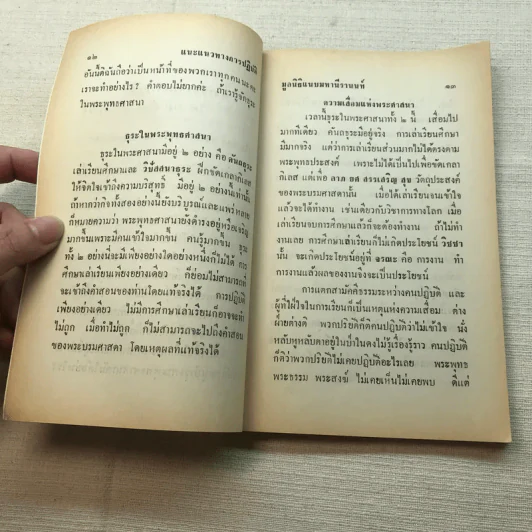 ๑๒ แนะแนวทางการปฏิบัติ
อันนี้ดิฉันถือว่าเป็นหน้าที่ของพวกเราทุกคน
เราจะทำอย่างไร? คำตอบไม่ยากค่ะ ถ้าเรารู้จักธุระ
ในพระพุทธศาสนา
ธุระในพระพุทธศาสนา
ธุระในพระศาสนามีอยู่ ๒ อย่าง คือ คันถธุระ
เล่าเรียนศึกษาและ วิปัสสนาธุระ ฝึกขัดเกลากิเลส
ให้จิตใจเข้าถึงความบริสุทธิ์ มีอยู่ ๒ อย่างนี้เท่านั้น
ถ้าหากว่ากิจทั้งสองอย่างนี้ยังบริบูรณ์และแพร่หลาย
ก็หมายความว่า พระพุทธศาสนายังดำรงอยู่หรือเจริญ
มากขึ้นเพราะมีคนเข้าใจมากขึ้น คนรู้มากขึ้น ธุระ
ทั้ง ๒ อย่างนี้จะมีเพียงอย่างใดอย่างหนึ่งก็ไม่ได้ การ
ศึกษาเล่าเรียนเพียงอย่างเดียว ก็ย่อมไม่สามารถ
จะเข้าถึงคำสอนของท่านโดยแท้จริงได้ การปฏิบัติ
เพียงอย่างเดียว ไม่มีการศึกษาเล่าเรียนก็อาจจะทำ
ไม่ถูก เมื่อทำไม่ถูก ก็ไม่สามารถจะไปถึงคำสอน
ของพระบรมศาสดา โดยเหตุผลที่แท้จริงได้
มูลนิธิแนบมหานีรานนท์ ๑๓
ความเสื่อมของพระศาสนา
เวลานี้ธุระในพระศาสนาทั้ง ๒ นี้ เสื่อมไป
มากทีเดียว คันถธุระมีอยู่จริง การเล่าเรียนศึกษา
มีมากจริง แต่ว่าการเล่าเรียนส่วนมากไม่ได้ตรงตาม
พระพุทธประสงค์ เพราะไม่ได้เป็นไปเพื่อขัดเกลา
กิเลส แต่เพื่อ ลาภ ยศ สรรเสริญ สุข วัตถุประสงค์
ของพระบรมศาสดานั้น เมื่อได้เล่าเรียนจนเข้าใจ
แล้วจะได้ทำงาน เช่นเดียวกับวิชาการทางโลก เมื่อ
เล่าเรียนจบการศึกษาแล้วก็จะต้องทำงาน ถ้าไม่ทำ
งานเลย การศึกษาเล่าเรียนก็ไม่เกิดประโยชน์ วิชชา
นั้น จะเกิดประโยชน์อยู่ที่ จรณะ คือ การงาน ทำ
การงานแล้วผลของงานจึงจะเป็นประโยชน์
การแตกสามัคคีธรรมระหว่างคนปฏิบัติ และ
ผู้ที่ฝักใฝ่ในการเรียนก็เป็นเหตุแห่งความเสื่อม ต่าง
ฝ่ายต่างตี พวกปริยัติก็ติคนปฏิบัติว่าไม่เข้าใจ นั่ง
หลับหูหลับตาอยู่ในป่าในดงไม่รู้เรื่องรู้ราว คนปฏิบัติ
ก็ติว่าพวกปริยัติไม่เคยปฏิบัติอะไรเลย พระพุทธ
พระธรรม พระสงฆ์ ไม่เคยเห็นไม่เคยพบ ดีแต่